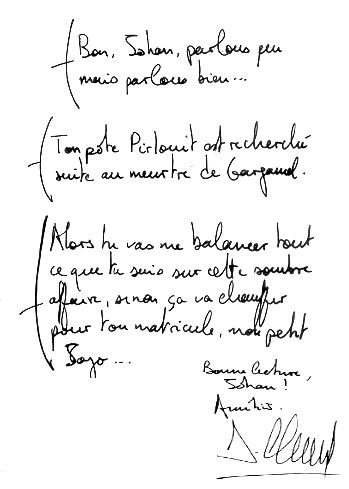 Bon, Johan, parlons peu
mais parlons bien...
Ton pote Pirlouit est recherché
suite au meurtre de Gargamel.
Alors tu vas me balancer tout
ce que tu sais sur cette sombre
affaire, sinon ça va chauffer
pour ton matricule, mon petit
Bonne lecture,
Johan !
Amitiés.